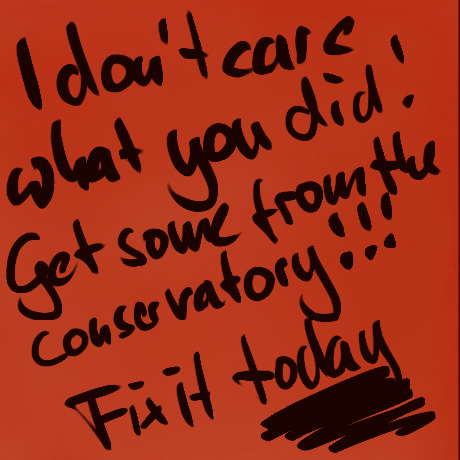 I don't care
what you did!
Get some from the
conservatory!!!
Fix it today